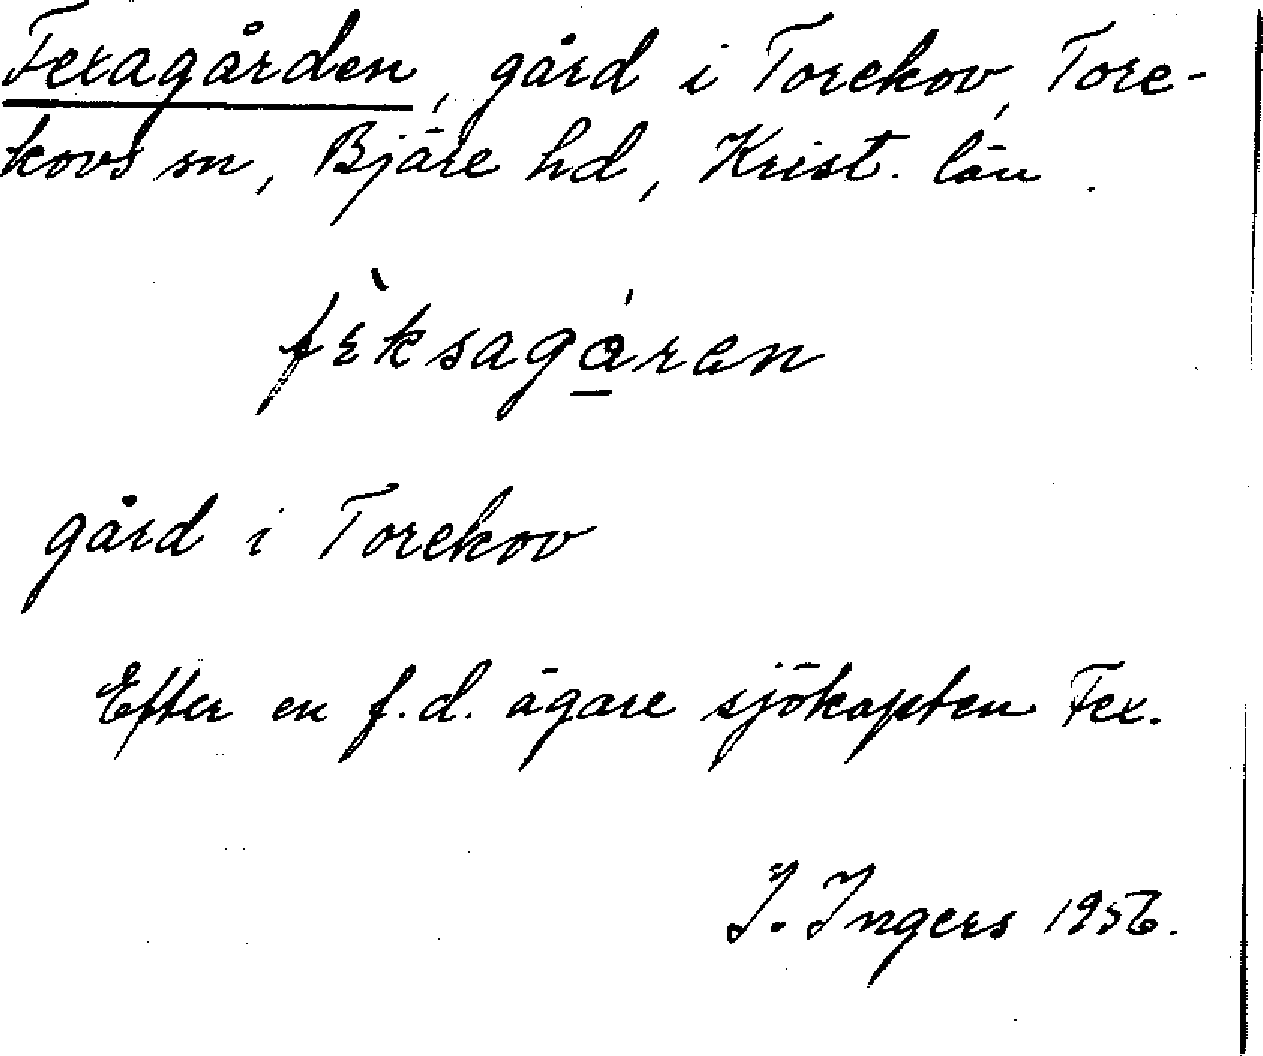 Fexagården, gård i Torekov, Tore-
kovs sn, Bjäre hd, Krist. län.
fɛ̀ksagá̱ren
gård i Torekov
Efter en f.d. ägare sjökapten Fex.
I. Ingers 1956.